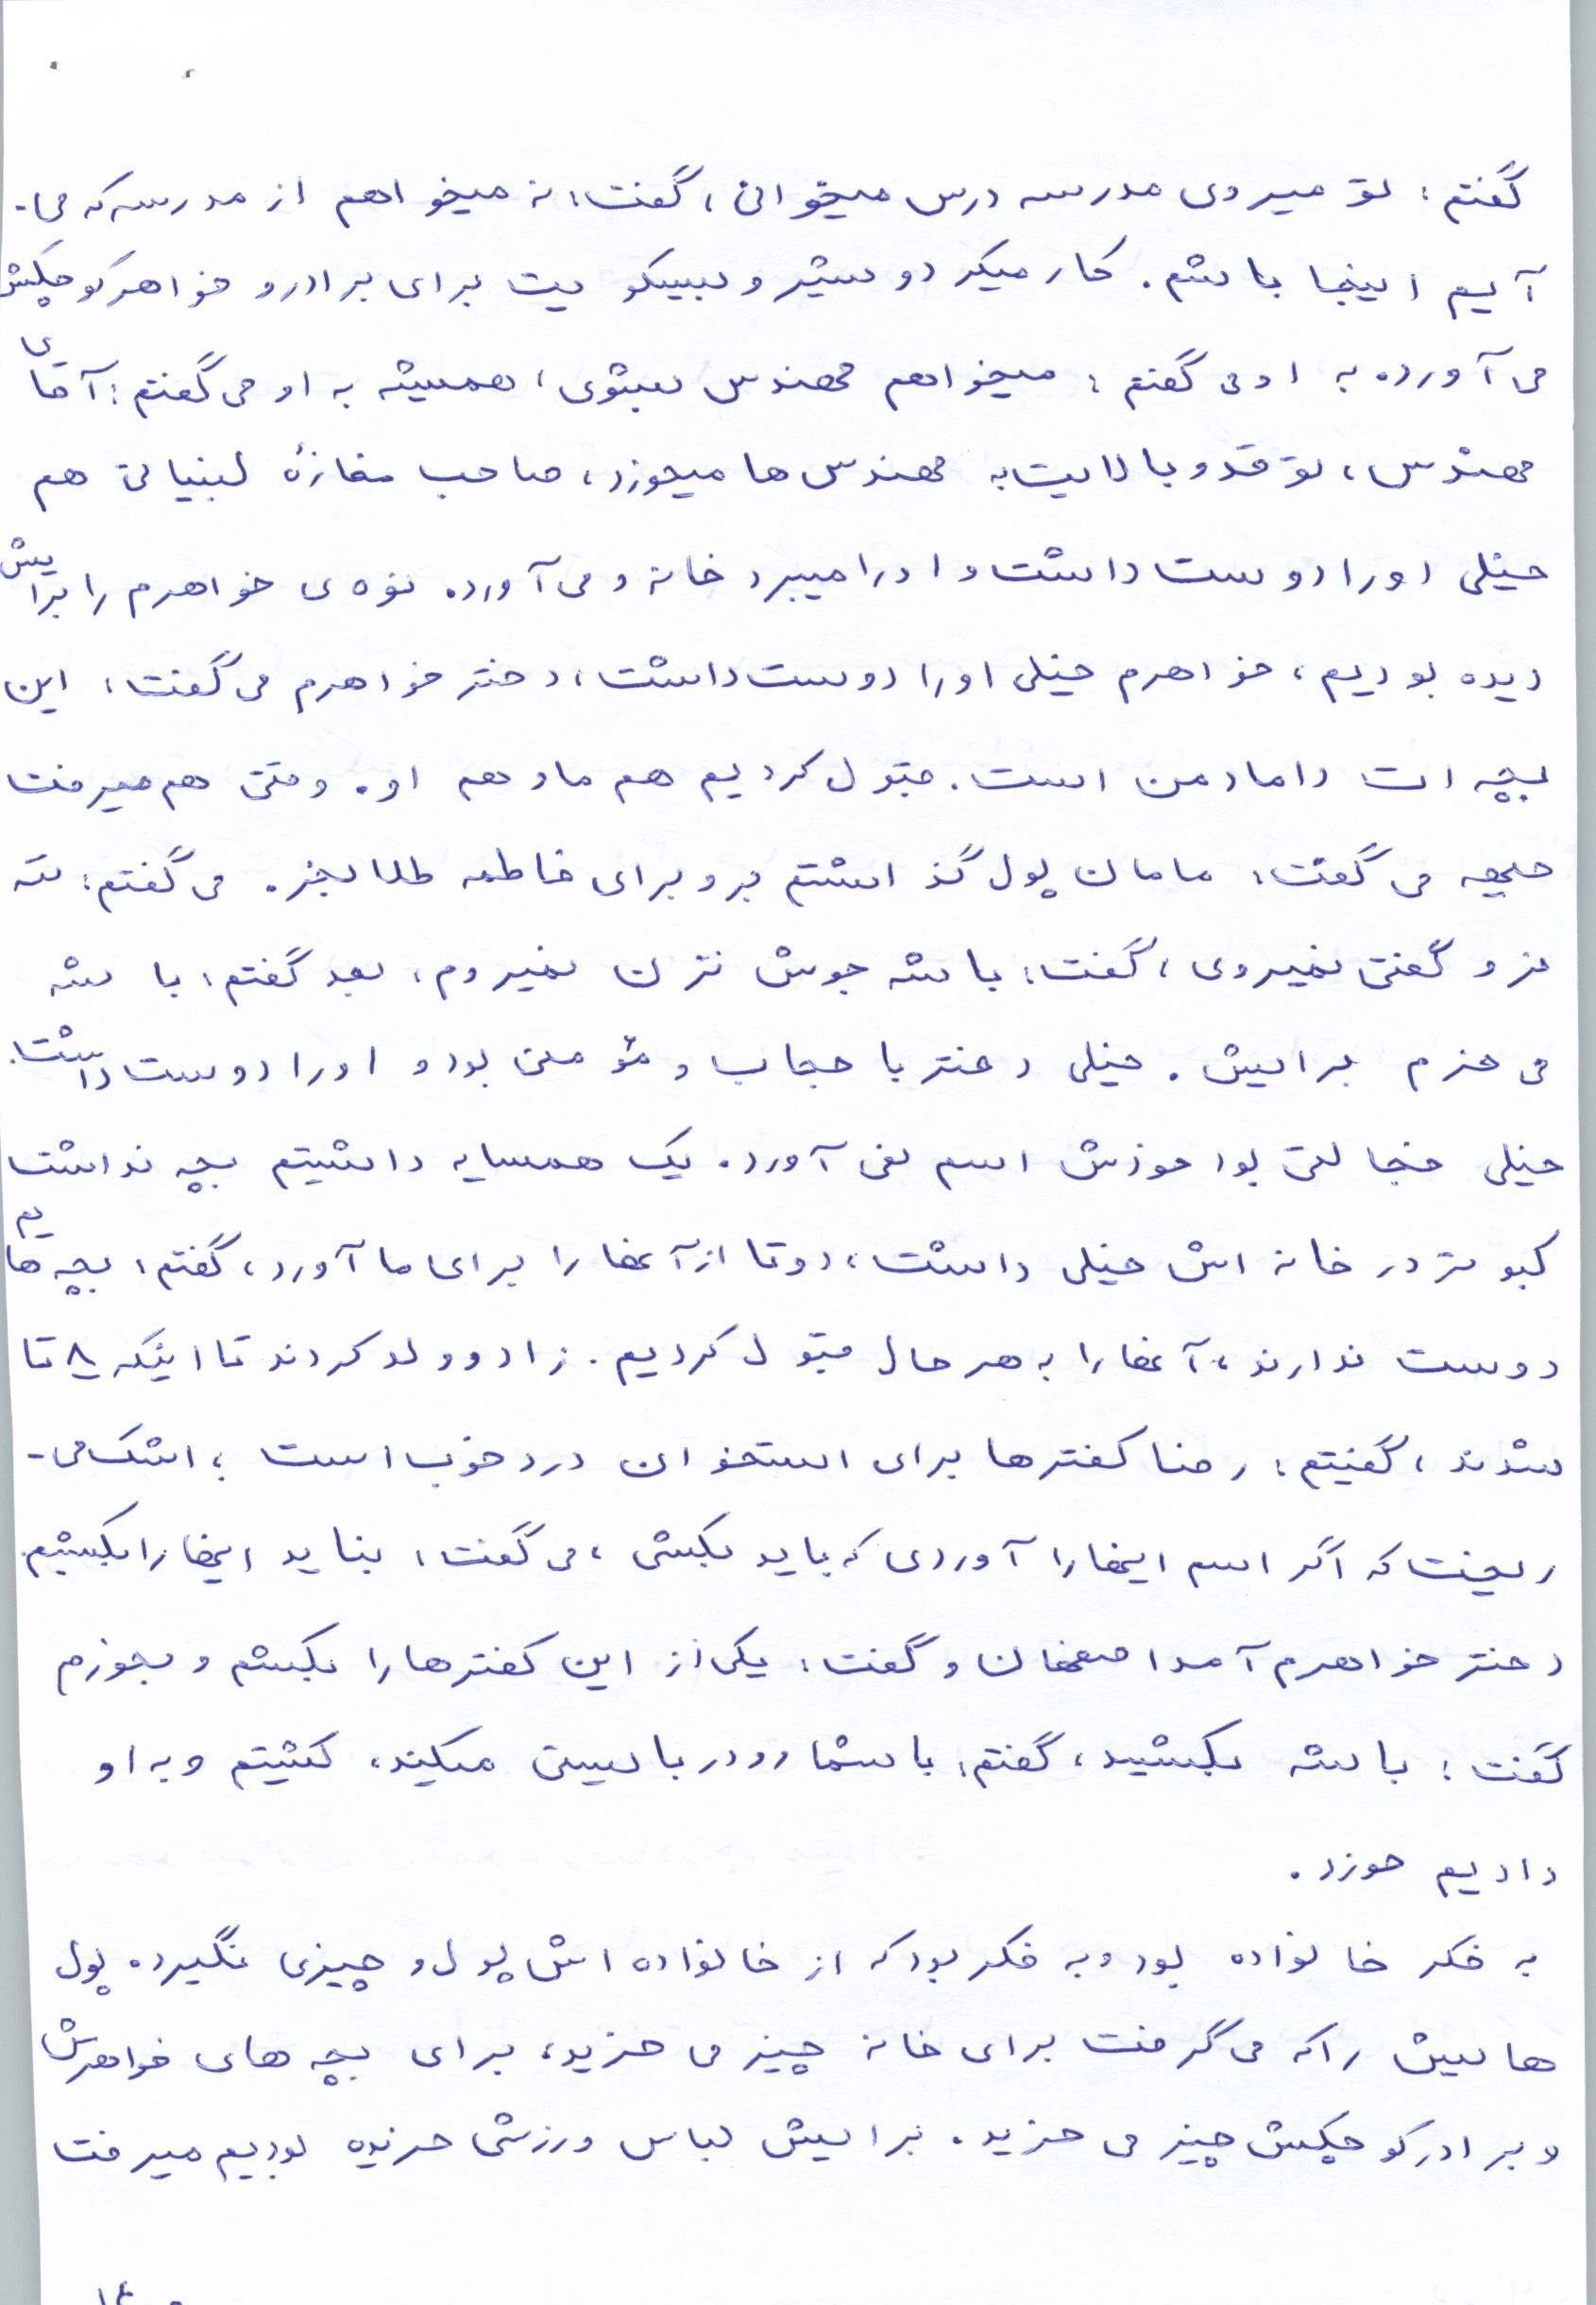 گفتم: تو میروی مدرسه درس میخوانی، گفت: نه میخواهم از مدرسه که می-
آیم اینجا باشم. کار میکرد و شیر و بیسکویت برای برادر و خواهر کوچکش
می آورد. به او می گفتم: میخواهم مهندس بشوی، همیشه به او می گفتم: آقای
مهندس، تو قد و بالایت به مهندس ها میخورد، صاحب مغازهٔ لبنیاتی هم
خیلی او را دوست داشت و او را میبرد خانه و می آورد. نوه ی خواهرم را برایش
دیده بودیم، خواهرم خیلی او را دوست داشت، دختر خواهرم می گفت: این
بچه ات داماد من است. قبول کردیم هم ما و هم او. وقتی هم میرفت
جبهه می گفت: مامان پول گذاشتم برو برای فاطمه طلا بخر. می گفتم: نه
نرو گفتی نمیروی، گفت: باشه جوش نزن نمیروم، بعد گفتم: باشه
می خرم برایش. خیلی دختر با حجاب و مؤمنی بود و او را دوست داشت.
خیلی خجالتی بود خودش اسم نمی آورد. یک همسایه داشتیم بچه نداشت
کبوتر در خانه اش خیلی داشت، دو تا از آنها را برای ما آورد، گفتم: بچه هایم
دوست ندارند، آنها را به هر حال قبول کردیم. زاد و ولد کردند تا اینکه ۸ تا
شدند، گفتیم: رضا کفترها برای استخوان درد خوب است، اشک می-
ریخت که اگر اسم اینها را آوردی که باید بکشی، می گفت: نباید اینها را بکشیم.
دختر خواهرم آمد اصفهان و گفت: یکی از این کفترها را بکشم و بخورم
گفت: باشه بکشید، گفتم: با شما رودربایستی میکند، کشتیم و به او
دادیم خورد.
به فکر خانواده بود و به فکر بود که از خانواده اش پول و چیزی نگیرد. پول
هایش را که می گرفت برای خانه چیز می خرید، برای بچه های خواهرش
و برادر کوچکش چیز می خرید. برایش لباس ورزشی خریده بودیم میرفت